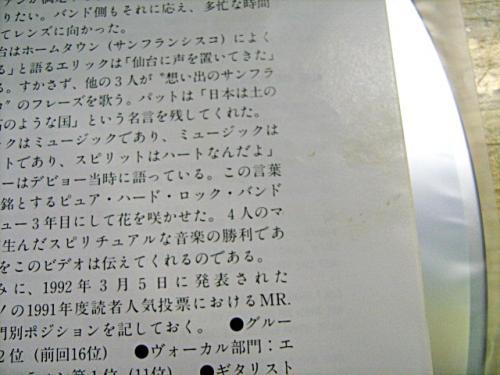 りたい。バンド側もそれに応え、多忙な時間
てレンズに向かった。
台はホームタウン（サンフランシスコ）によく
る」と語るエリックは「仙台に声を置いてきた」
る。すかさず、他の3人が〝想い出のサンフラ
コ〟のフレーズを歌う。パットは「日本は土の
のような国」という名言を残してくれた。
クはミュージックであり、ミュージックは
トであり、スピリットはハートなんだよ」
ーはデビョー当時に語っている。この言葉
銘とするピュア・ハード・ロック・バンド
ュー3年目にして花を咲かせた。4人のマ
生んだスピリチュアルな音楽の勝利であ
をこのビデオは伝えてくれるのである。
みに、1992年3月5日に発表された
ノの1991年度読者人気投票におけるMR.
門別ポジションを記しておく。 ●グルー
2位（前回16位） ●ヴォーカル部門：エ
第1位（11位） ●ギタリスト